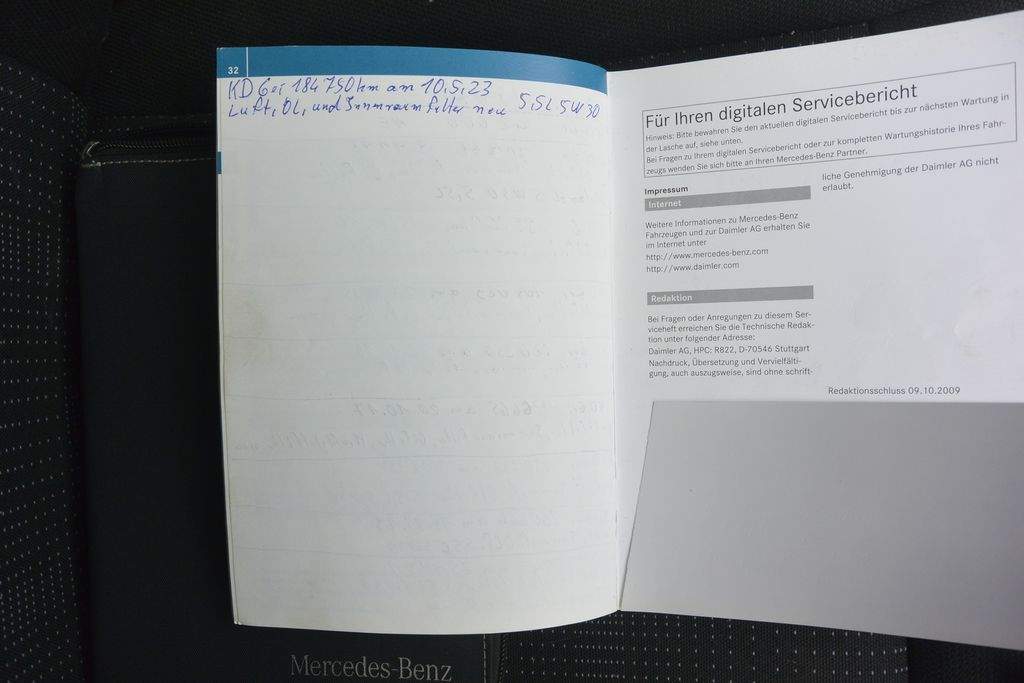 32
KD bei 184 750 km am 10.5.23
Luft, Öl, und Innenraum filter neu 5,5L 5W30
Für Ihren digitalen Servicebericht
Hinweis: Bitte bewahren Sie den aktuellen digitalen Servicebericht bis zur nächsten Wartung in
der Lasche auf, siehe unten.
Bei Fragen zu Ihrem digitalen Servicebericht oder zur kompletten Wartungshistorie Ihres Fahr-
zeugs wenden Sie sich bitte an Ihren Mercedes-Benz Partner.
Impressum
Internet
Weitere Informationen zu Mercedes-Benz
Fahrzeugen und zur Daimler AG erhalten Sie
im Internet unter
http://www.mercedes-benz.com
http://www.daimler.com
Redaktion
Bei Fragen oder Anregungen zu diesem Ser-
viceheft erreichen Sie die Technische Redak-
tion unter folgender Adresse:
Daimler AG, HPC: R822, D-70546 Stuttgart
Nachdruck, Übersetzung und Vervielfälti-
gung, auch auszugsweise, sind ohne schrift-
liche Genehmigung der Daimler AG nicht
erlaubt.
Redaktionsschluss 09.10.2009
Mercedes-Benz